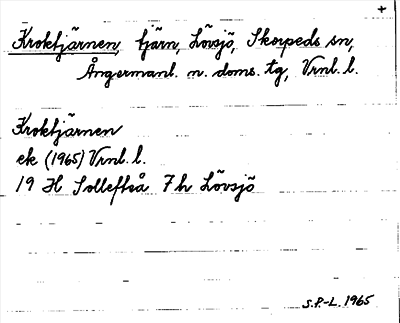 +
Kroktjärnen, tjärn, Lövsjö, Skorpeds sn,
Ångermanl. n. doms. tg, Vrnl. l.
Kroktjärnen
ek (1965) Vrnl. l.
19 H Sollefteå 7 h Lövsjö
S.P-L. 1965